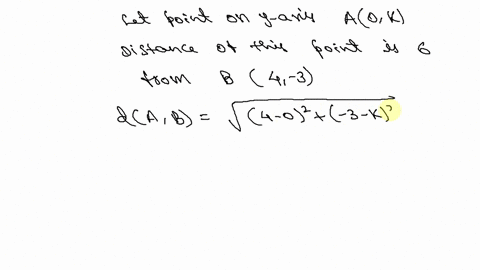 Let point on y-axis A(0,K)
Distance of this point is 6
from B (4,-3)
d(A,B) = √(4-0)²+(-3-K)²